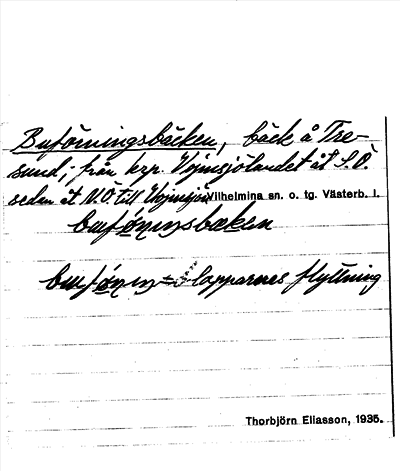 Buföringsbäcken, bäck å Tre-
sund; från krp. Vojmsjölandet åt S.Ö.
sedan åt N.Ö. till Vojmsjön Vilhelmina sn. o. tg. Västerb. l.
bufǿninsbæken
bufǿnin = lapparnes flyttning
Thorbjörn Eliasson, 1935.